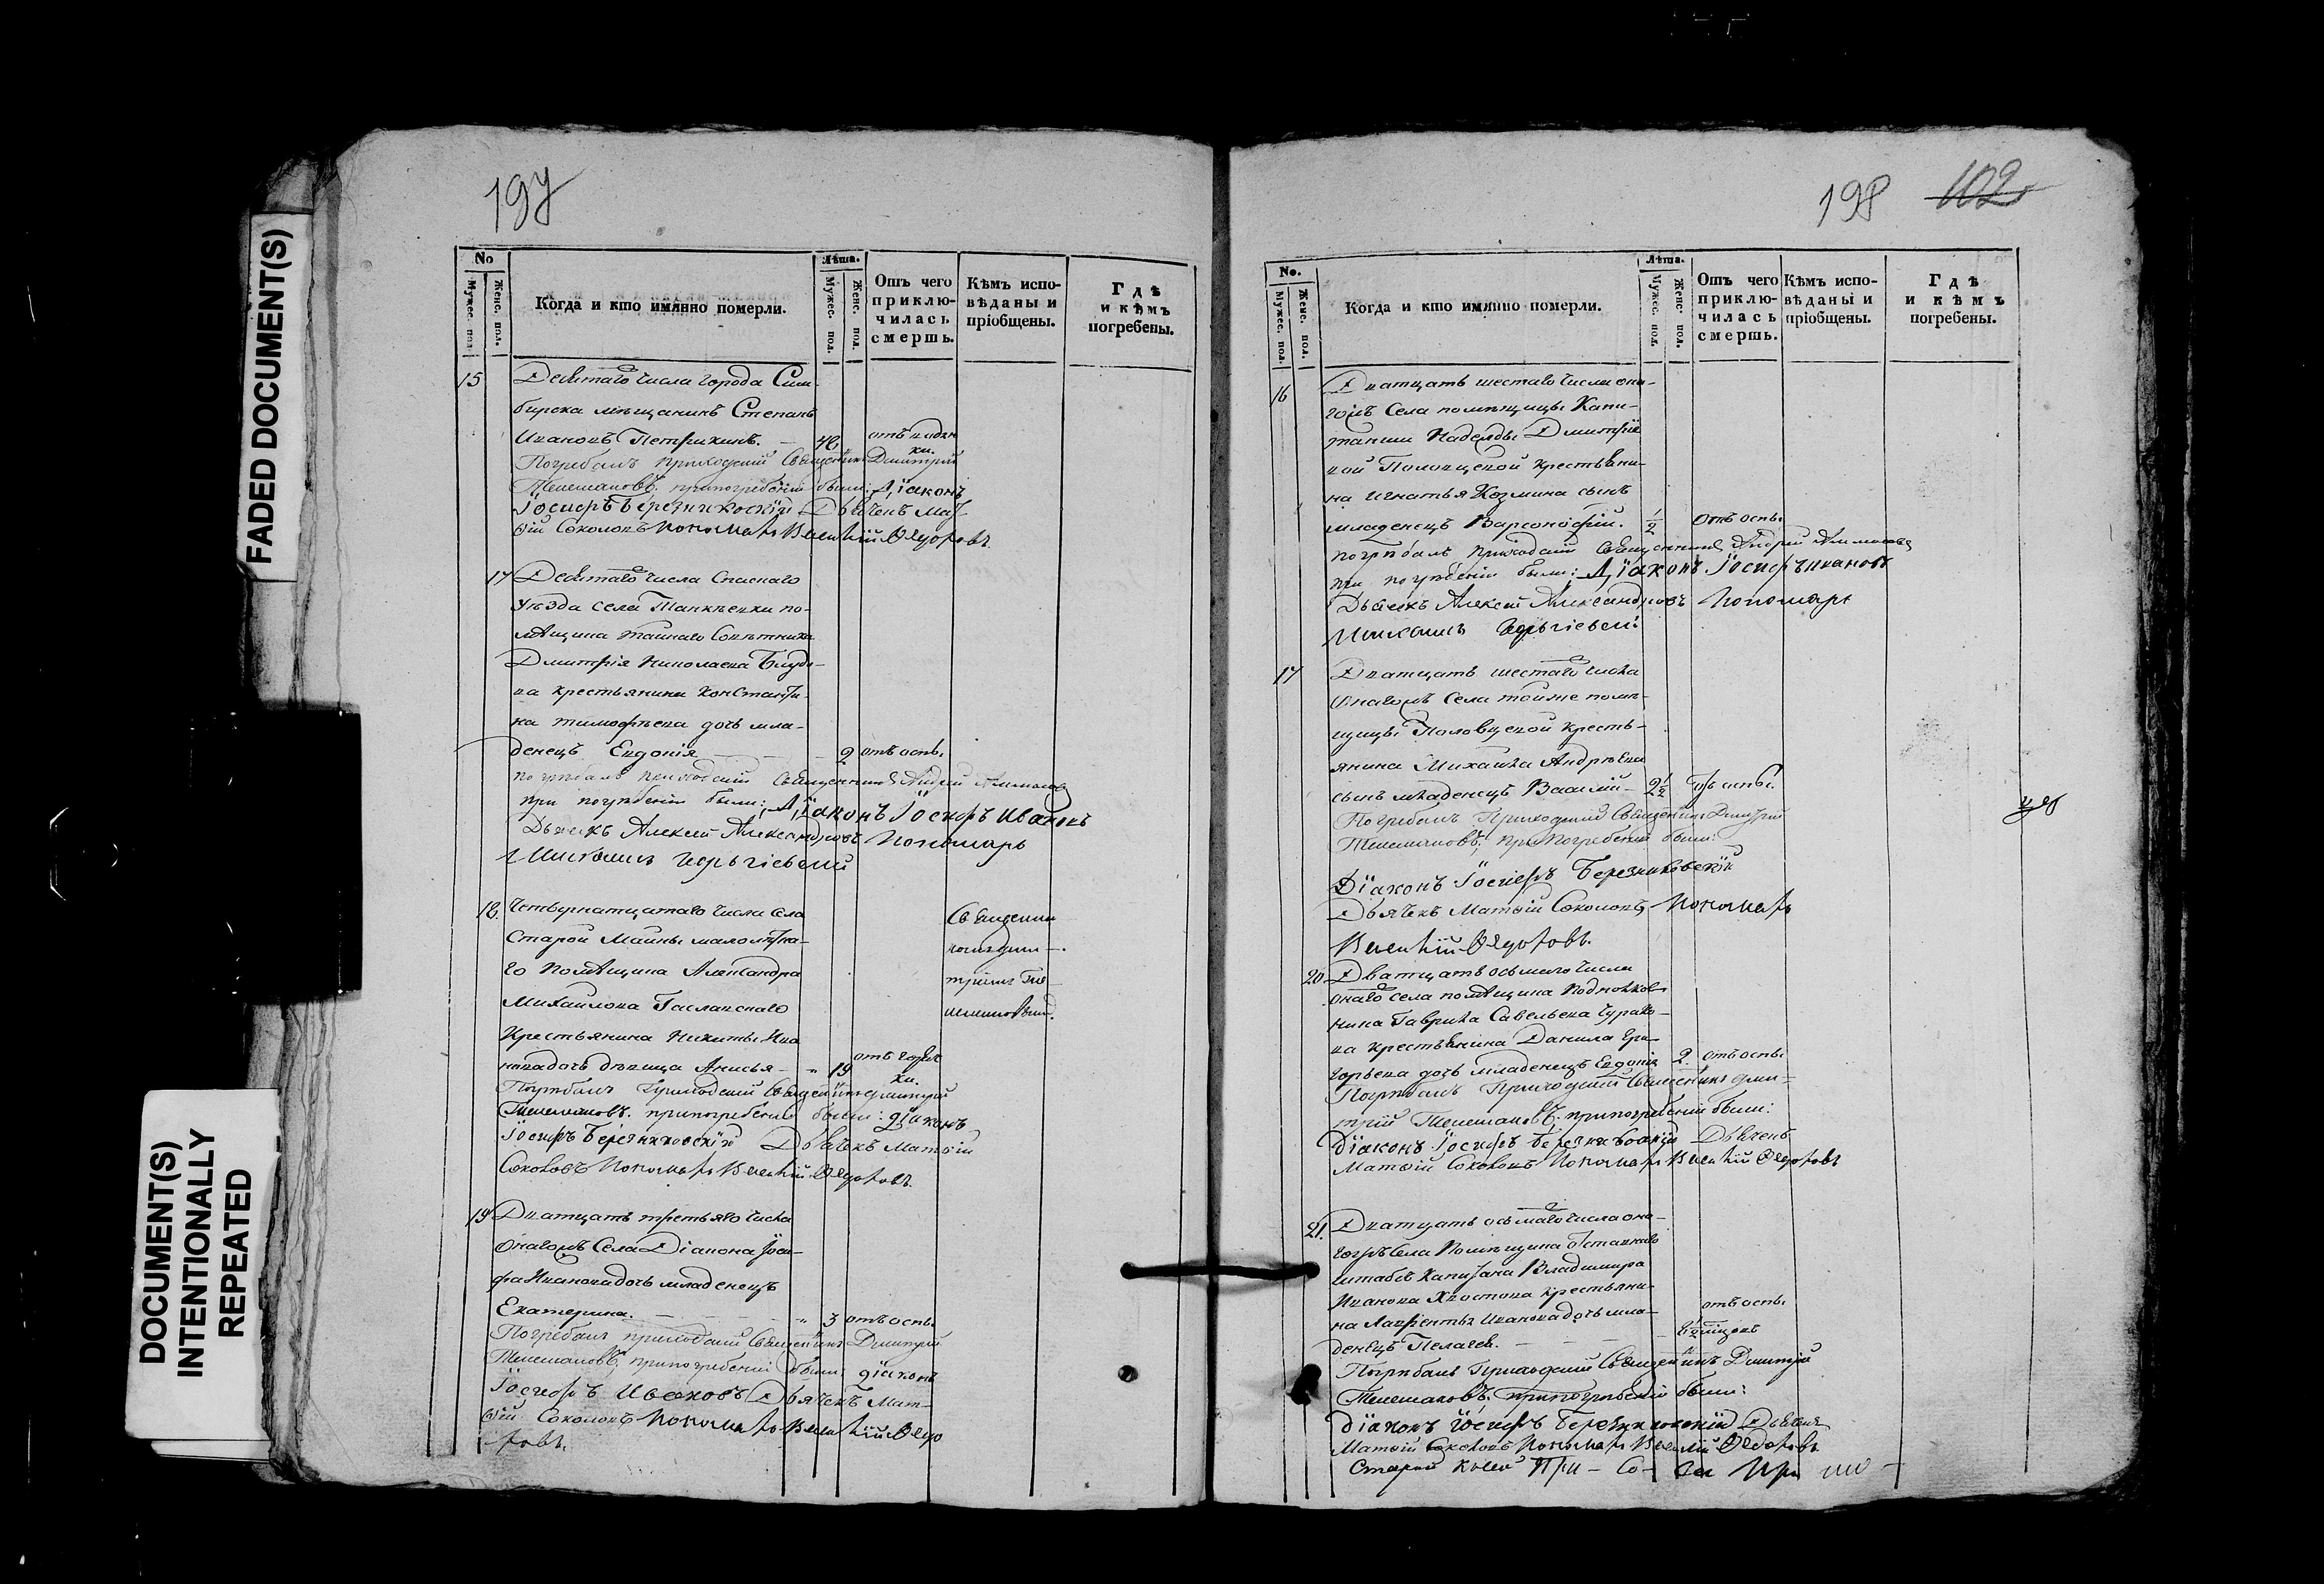 FADED DOCUMENT(S)
DOCUMENT(S)
INTENTIONALLY
REPEATED
197
No
Мужес. пол.
Женс. пол.
Когда и кто имянно померли.
Лѣта.
Мужес. пол.
Женс. пол.
Отъ чего приклю-чилась смерть.
Кѣмъ испо-вѣданы и пріобщены.
Гдѣ и кѣмъ погребены.
15 Девятаго числа города Сим-
бирска мѣщанинъ Степанъ
Ивановъ Петрихинъ. —
Погребалъ приходскій Священникъ Дмитрій
при погребеніи были: Діаконъ
Іосифъ Березниковскій Дьячекъ Мат-
ѳій Соколовъ Пономарь Василій Ѳедоровъ
17 Девятаго числа Спаскаго
уѣзда села Танкѣевки по-
мѣщика тайнаго Совѣтника
Дмитрія Николаева Блудо-
ва крестьянина Константи-
на Тимофѣева дочь мла-
денецъ Евдокія — 2 отъ оспы
погребалъ приходскій священникъ Андрей
при погребеніи были: Діаконъ Іосифъ Ивановъ
Дьячекъ Алексѣй Александровъ Пономарь
18. Четвернатцатаго числа села
Старой Майны малолѣтна-
го помѣщика Александра
Михайлова
Крестьянина Никиты Ива
нова дочь дѣвица Анисья — " 19 отъ горяч
ки.
Погребалъ Приходскій Священникъ Дмитрій
при погребеніи были: діаконъ
Іосифъ Березниковскій Дьячекъ Матѳій
Соколовъ Пономарь Василій Ѳедоровъ.
19 Дватцать третьяго числа
онагожъ Села Діакона Іоси-
фа Иванова дочь младенецъ
Екатерина. — " 3 отъ оспы
Погребалъ приходскій Священникъ Дмитрій
при погребеніи были діаконъ
Іосифъ Ивановъ Дьячекъ Мат-
ѳій Соколовъ Пономарь Василій Ѳедо
ровъ.
198 102
No.
Мужес. пол.
Женс. пол.
Когда и кто имянно померли.
Лѣта.
Мужес. пол.
Женс. пол.
Отъ чего приклю-чилась смерть.
Кѣмъ испо-вѣданы и пріобщены.
Гдѣ и кѣмъ погребены.
16 Дватцать шестаго числа она-
гожъ Села помѣщицы Капи-
танши Надежды Дмитріе
вой Половцевой крестьяни-
на Игнатья Козмина сынъ
младенецъ Варсонофій. 1/2 отъ оспы
погребалъ приходскій Священникъ Андрей
при погребеніи были: Діаконъ Іосифъ Ивановъ
Дьячекъ Алексѣй Александровъ Пономарь
17 Дватцать шестаго числа
Онагожъ Села тойже помѣ-
щицы Половцевой кресть-
янина Михаила Андрѣева
сынъ младенецъ Василій — 2 1/2 отъ оспы.
Погребалъ Приходскій Священникъ Дмитрій
при погребеніи были:
Діаконъ Іосифъ Березниковскій
Дьячекъ Матѳій Соколовъ Пономарь
Василій Ѳедоровъ.
20 Дватцать осьмаго числа
онаго села помѣщика Подполков
ника Гаврила Савельева
ва крестьянина Данила Гри-
горьева дочь младенецъ Евдокія 2. отъ оспы
Погребалъ Приходскій Священникъ Дми-
трій при погребеніи были:
Діаконъ Іосифъ Березниковскій Дьячекъ
Матѳій Соколовъ Пономарь Василій Ѳедоровъ
21. Дватцать осьмаго числа она-
гожъ Села Помѣщика Отставнаго
штабсъ Капитана Владимира
Иванова Хвостова крестьяни-
на Лаврентья Иванова дочь мла- отъ оспы
денецъ Пелагея. —
Погребалъ Приходскій Священникъ Дмитрій
при погребеніи были:
Діаконъ Іосифъ Березниковскій Дьячекъ
Матѳій Соколовъ Пономарь Василій Ѳедоровъ